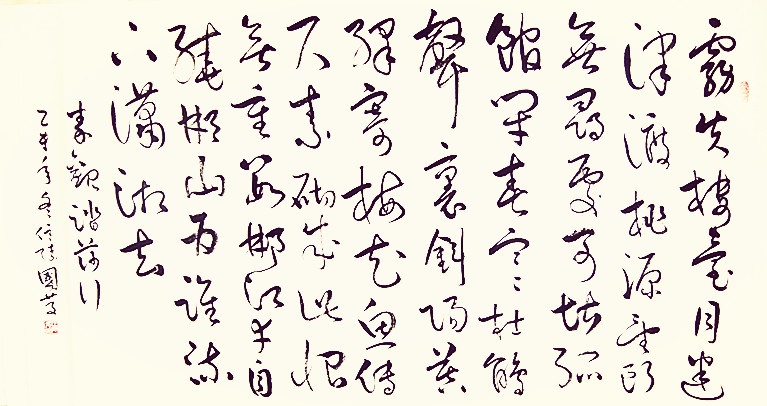 霧失樓臺月迷
津渡桃源望斷
無尋處可堪孤
館閉春寒杜鵑
聲裏斜陽暮
驛寄梅花魚傳
尺素砌成此恨
無重數郴江幸自
繞郴山為誰流
下瀟湘去
秦觀踏莎行
乙未年冬信陵國